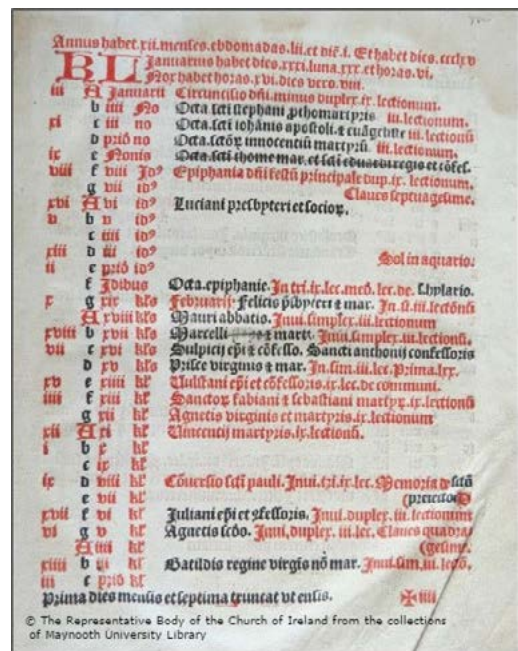 Annus habet .xii. menses. ebdomadas .lii. et diē .i. Et habet dies .ccclxv
KL Januarius habet dies .xxxi. luna .xxx. et horas .vi.
Nox habet horas .xvi. dies vero .viii.
iii A Januarii Circuncisio dñi. minus duplex .ix. lectionum.
b iiii No Octa. scti stephani ꝓthomartyris iii. lectionum.
xi c iii no Octa. scti iohānis apostoli. ⁊ euāgeliste iii. lectionū
d priō no Octa. sctōꝝ innocentiū martyrū iii. lectionum.
ix e Nonis Octa. scti thome mar. et scti eduardi regis et cōfes.
viii f viii Idꝰ Epiphania dñi festū principale dup. ix. lectionum.
g vii idꝰ Claues septuagesime.
xvi A vi idꝰ Luciani presbyteri et socioꝝ.
v b v idꝰ
c iiii idꝰ
xiii d iii idꝰ Sol in aquario.
ii e priō idꝰ
f Idibus Octa. epiphanie. In tri. ix. lec. meō. lec. de. S. hylario.
x g xix kłs Februarij. Felicis ꝑsbyteri ⁊ mar. In. st. iii. lectōnū
A xviii kłs Mauri abbatis. Inui. simplex. iii. lectionum
xviii b xvii kłs Marcelli ⁊ mart. Inui. simplex. iii. lectionū.
vii c xvi kłs Sulpicij epi ⁊ cōfesso. Sancti anthonij confessoris
d xv kłs Prisce virginis ⁊ mar. In. sim. iii. lec. Prima. lxx.
xv e xiiii kł Vulstani epi et cōfessoris. ix. lec. de communi.
iiii f xiii kł Sanctoꝝ fabiani ⁊ sebastiani martyꝝ. ix. lectionū
g xii kł Agnetis virginis et martyris. ix. lectionum
xii A xi kł Uincentij martyris. ix. lectionū.
i b x kł
c ix kł
ix d viii kł Cōuersio scti pauli. Inui. tri. ix. lec. Memoria de
e vii kł
xvii f vi kł Juliani epi et ꝯfessoris. Inui. duplex. iii. lectionum
vi g v kł Agnetis scdo. Inui. duplex. iii. lec. Claues quadra
A iiii kł (gesime.
xiiii b iii kł Batildis regine virgīs nō mar. Inui. sim. iii. lecō.
iii c priō kł
Prima dies mensis et septima truncat vt ensis. ✠ iiii
© The Representative Body of the Church of Ireland from the collections
of Maynooth University Library